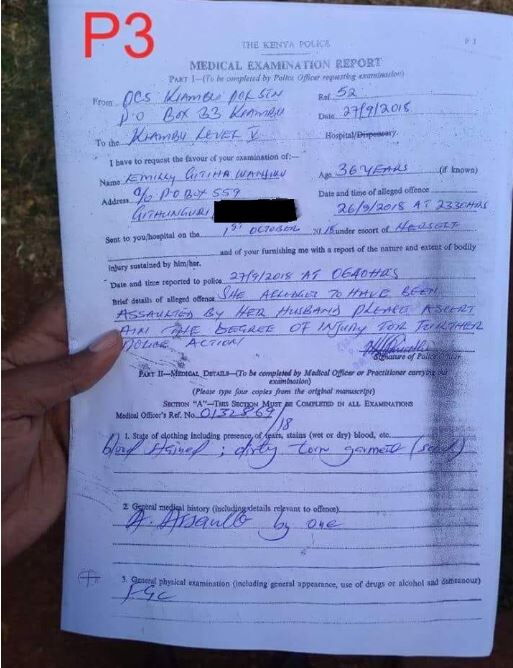 P3
THE KENYA POLICE
P 3
MEDICAL EXAMINATION REPORT
PART I—(To be completed by Police Officer requesting examination)
From OCS KIAMBU POLSTN Ref. 52
P.O BOX 33 KIAMBU Date 27/9/2018
To the KIAMBU LEVEL V Hospital/Dispensary.
I have to request the favour of your examination of:—
Name EMILLY GITIHA WANJIRU Age 36 YEARS (if known)
Address C/o P.O BOX 559 Date and time of alleged offence
GITHUNGURI 26/9/2018 AT 2330HRS
Sent to you/hospital on the 1ST OCTOBER 2018 under escort of HERSELF
and of your furnishing me with a report of the nature and extent of bodily
injury sustained by him/her.
Date and time reported to police 27/9/2018 AT 0640HRS
Brief details of alleged offence SHE ALLEGED TO HAVE BEEN
ASSAULTED BY HER HUSBAND PLEASE ASCERT
AIN THE DEGREE OF INJURY FOR FURTHER
POLICE ACTION
Signature of Police Officer
PART II—MEDICAL DETAILS—(To be completed by Medical Officer or Practitioner carrying out
examination)
(Please type four copies from the original manuscript)
SECTION "A"—THIS SECTION MUST BE COMPLETED IN ALL EXAMINATIONS
Medical Officer's Ref. No. 0132869/18
1. State of clothing including presence of tears, stains (wet or dry) blood, etc.
blood stained; dirty torn garment
2. General medical history (including details relevant to offence).
A. Assault by one
3. General physical examination (including general appearance, use of drugs or alcohol and demeanour)
FGC